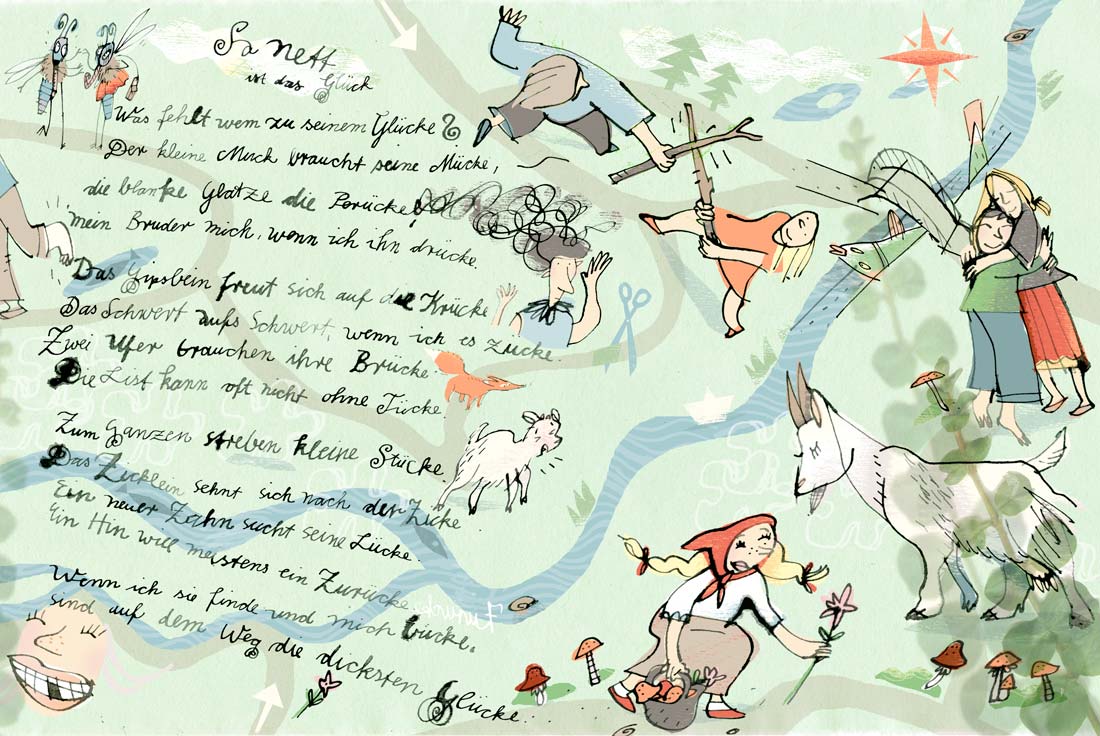 So nett
ist das Glück
Was fehlt wem zu seinem Glücke?
Der kleine Muck braucht seine Mücke,
die blanke Glatze die Perücke,
mein Bruder mich, wenn ich ihn drücke.
Das Gipsbein freut sich auf die Krücke
Das Schwert aufs Schwert, wenn ich es zücke.
Zwei Ufer brauchen ihre Brücke.
Die List kann oft nicht ohne Tücke.
Zum Ganzen streben kleine Stücke.
Das Zicklein sehnt sich nach der Zicke
Ein neuer Zahn sucht seine Lücke.
Ein Hin will meistens ein Zurücke
Wenn ich sie finde und mich bücke,
sind auf dem Weg die dicksten Glücke...